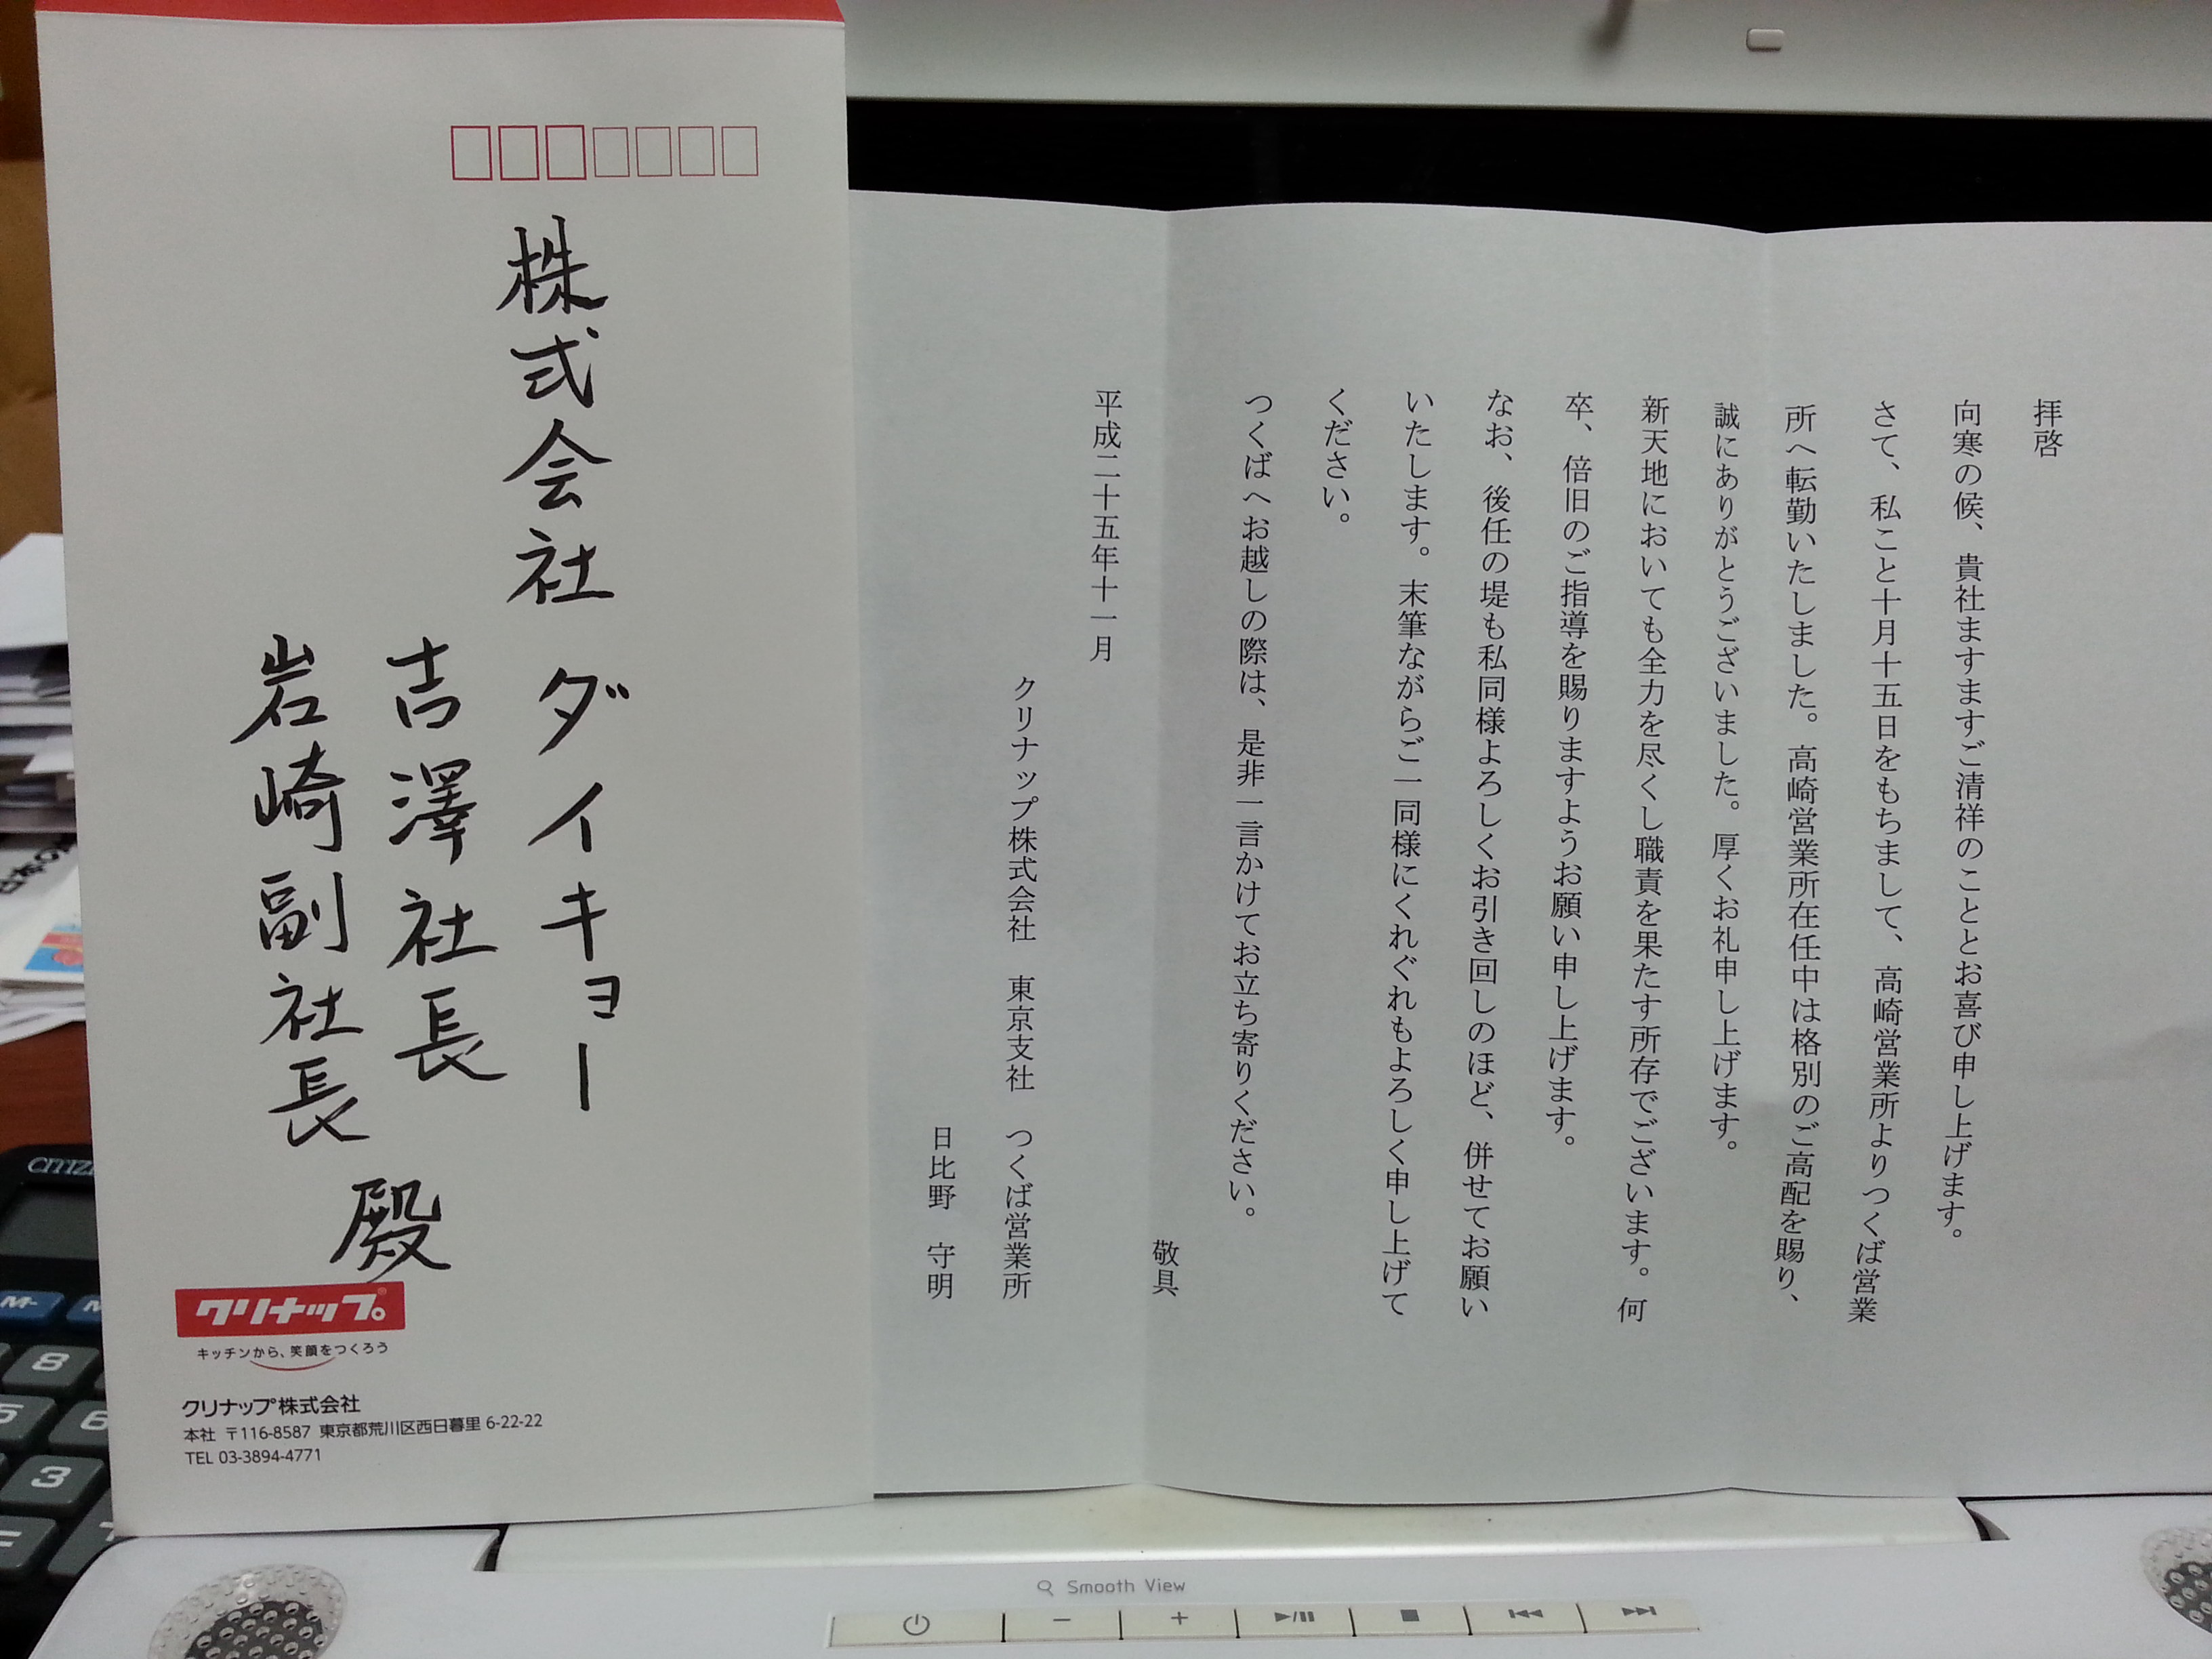 株式会社 ダイキョー
吉澤社長
岩崎副社長
殿
クリナップ
キッチンから、笑顔をつくろう
クリナップ株式会社
本社 〒116-8587 東京都荒川区西日暮里 6-22-22
TEL 03-3894-4771
拝啓
向寒の候、貴社ますますご清祥のこととお喜び申し上げます。
さて、私こと十月十五日をもちまして、高崎営業所よりつくば営業
所へ転勤いたしました。高崎営業所在任中は格別のご高配を賜り、
誠にありがとうございました。厚くお礼申し上げます。
新天地においても全力を尽くし職責を果たす所存でございます。何
卒、倍旧のご指導を賜りますようお願い申し上げます。
なお、後任の堤も私同様よろしくお引き回しのほど、併せてお願い
いたします。末筆ながらご一同様にくれぐれもよろしく申し上げて
ください。
つくばへお越しの際は、是非一言かけてお立ち寄りください。
敬具
平成二十五年十一月
クリナップ株式会社 東京支社 つくば営業所
日比野 守明
CITIZE
M-
8
5
6
3
Smooth View